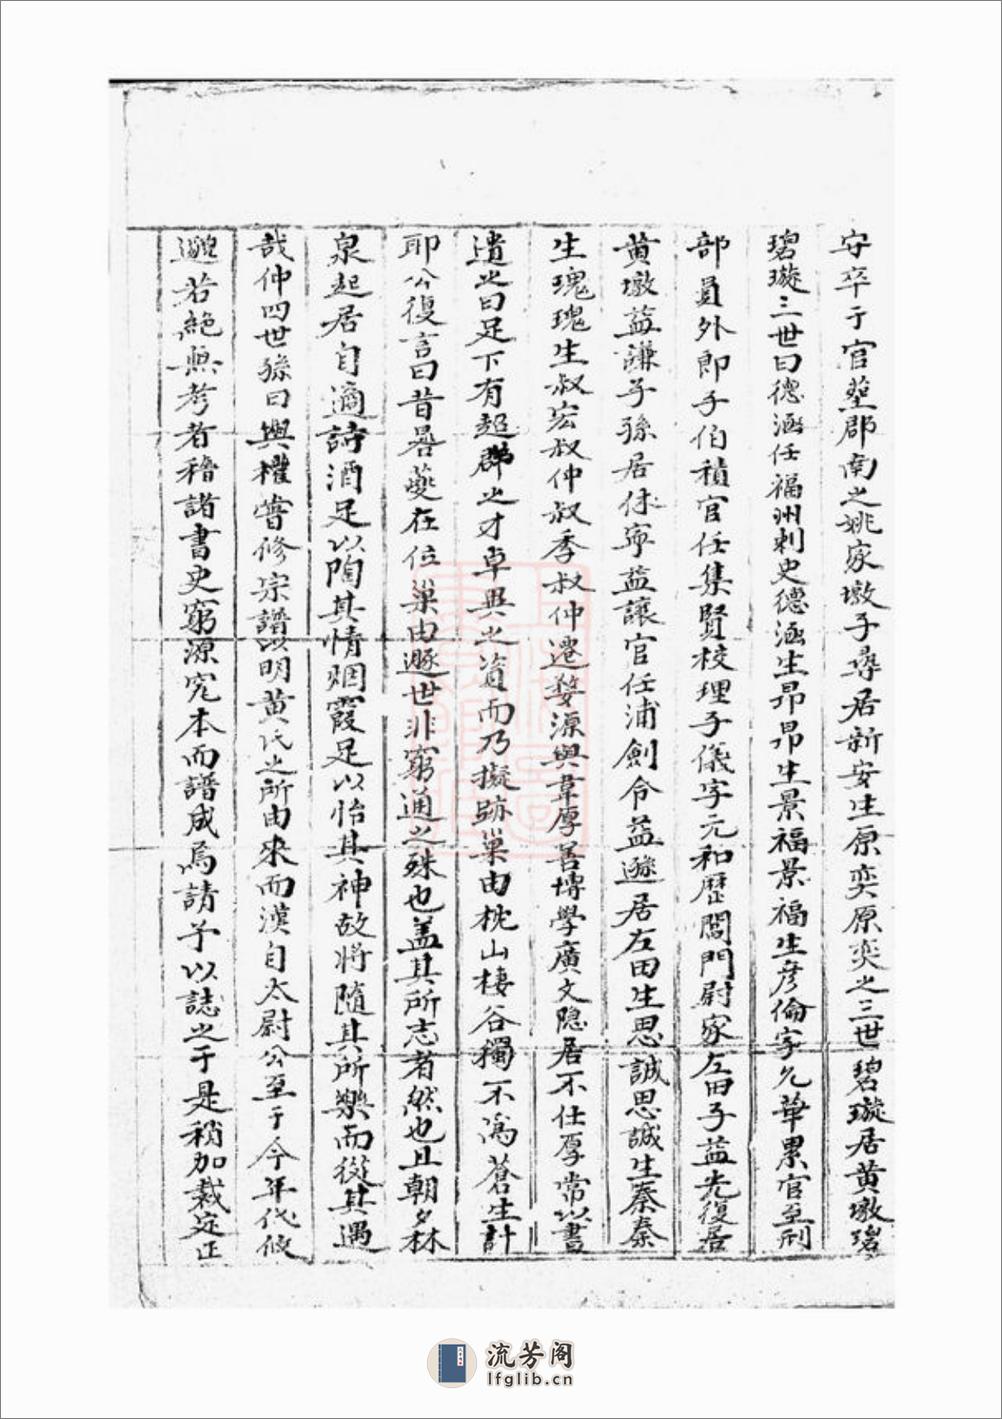 守卒于官塟郡南之姚家墩子尋居新安生原奕原奕之三世碧璇居黄墩碧
碧璇三世曰德涵任福州刺史德涵生昂昂生景福景福生彦倫字允華累官至刑
部員外郎子伯積官任集賢校理子儀字元和歷閶門尉家左田子益光復居
黄墩益謙子孫居休寧益讓官任浦劍令益遜居左田生思誠思誠生秦秦
生瑰瑰生叔宏叔仲叔季叔仲遷婺源與韋厚善博學廣文隐居不仕厚常以書
遺之曰足下有超群之才卓異之資而乃擬跡巢由枕山棲谷獨不為蒼生計
耶公復言曰昔晷夔在位巢由遯世非窮通之殊也盖其所志者然也且朝夕林
泉起居自適詩酒足以陶其情烟霞足以怡其神故將随其所樂而從其遇
哉仲四世孫曰與權嘗修宗譜以明黄氏之所由來而漢自太尉公至于今年代攸
邈若絶無考者稽諸書史窮源究本而譜成焉請予以誌之于是稍加裁定正
流芳阁
lfglib.cn